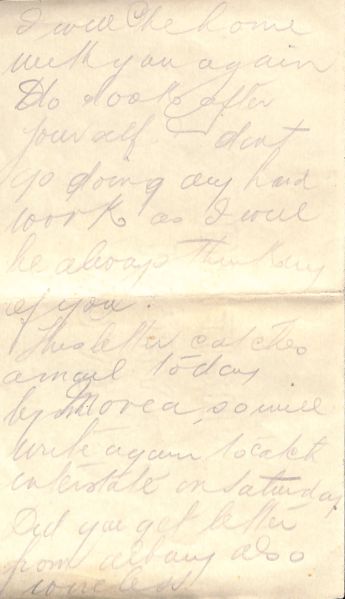 I will be home
with you again
Do look after
yourself dont
go doing any hard
work as I will
be always thinking
of you.
This letter catches
a mail today
by Morea, so will
write again to catch
interstate on Saturday
Did you get letter
from Albany also
wireless